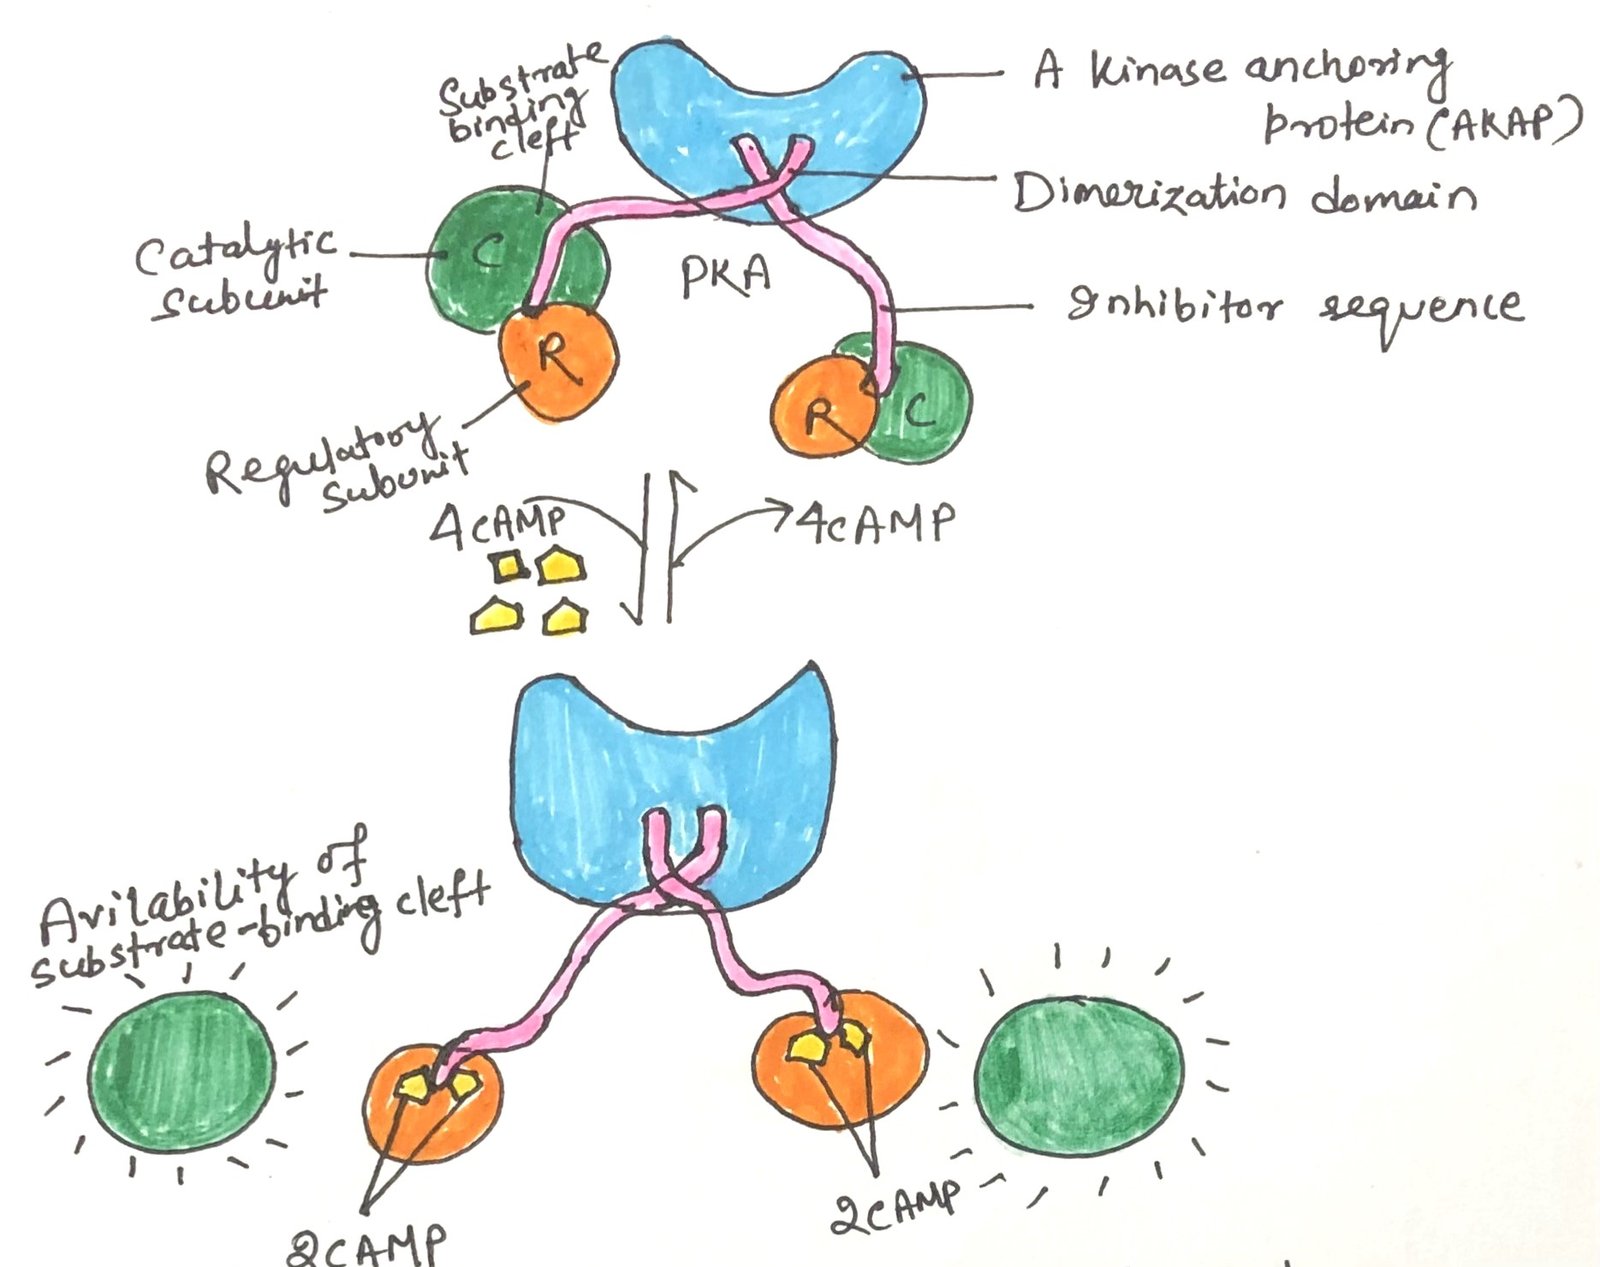 Substrate
binding
cleft
A kinase anchoring
protein (AKAP)
Dimerization domain
Catalytic
subunit
C
PKA
Inhibitor sequence
R
R
C
Regulatory
subunit
4cAMP
4cAMP
Avilability of
substrate-binding cleft
2cAMP
2cAMP